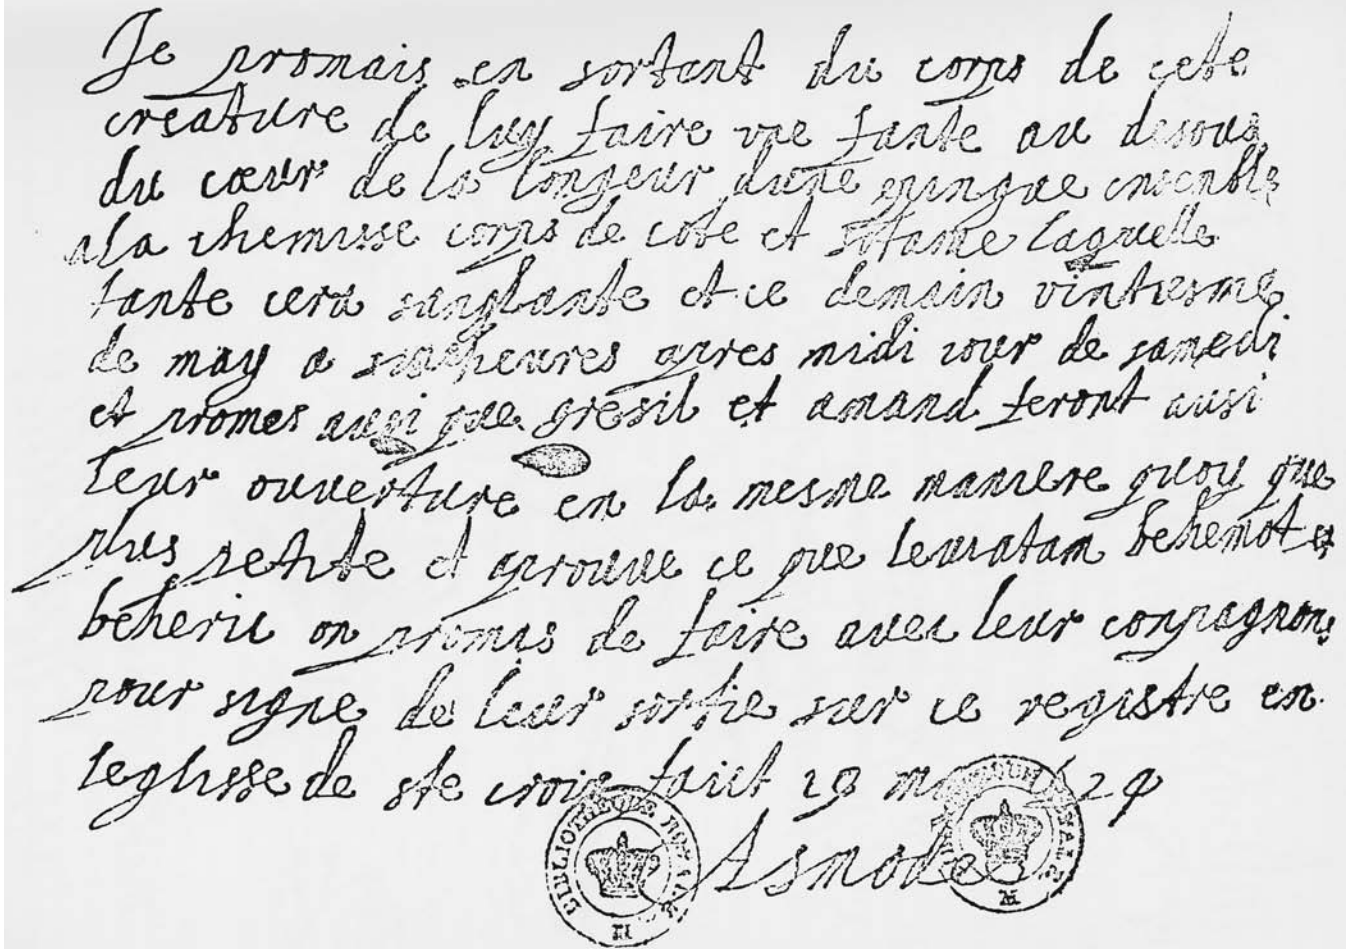 Je promais en sortant du corps de cete
creature de luy faire vne fante au desous
du cœur de la longeur dune pingue ensenble
a la chemisse corps de cote et sotane laquelle
fante cera sanglante et ce demain vintiesme
de may a sinc heures apres midi iour de samedi
et promes ausi que gresil et amand feront ausi
leur ouverture en la mesme maniere quoy que
plus petite et aprouue ce que leuiatam behemot et
beherie on promis de faire avec leur conpagnons
pour signe de leur sortie sur ce registre en
leglisse de ste croix faict 19 may
Asmodee
BIBLIOTHEQUE